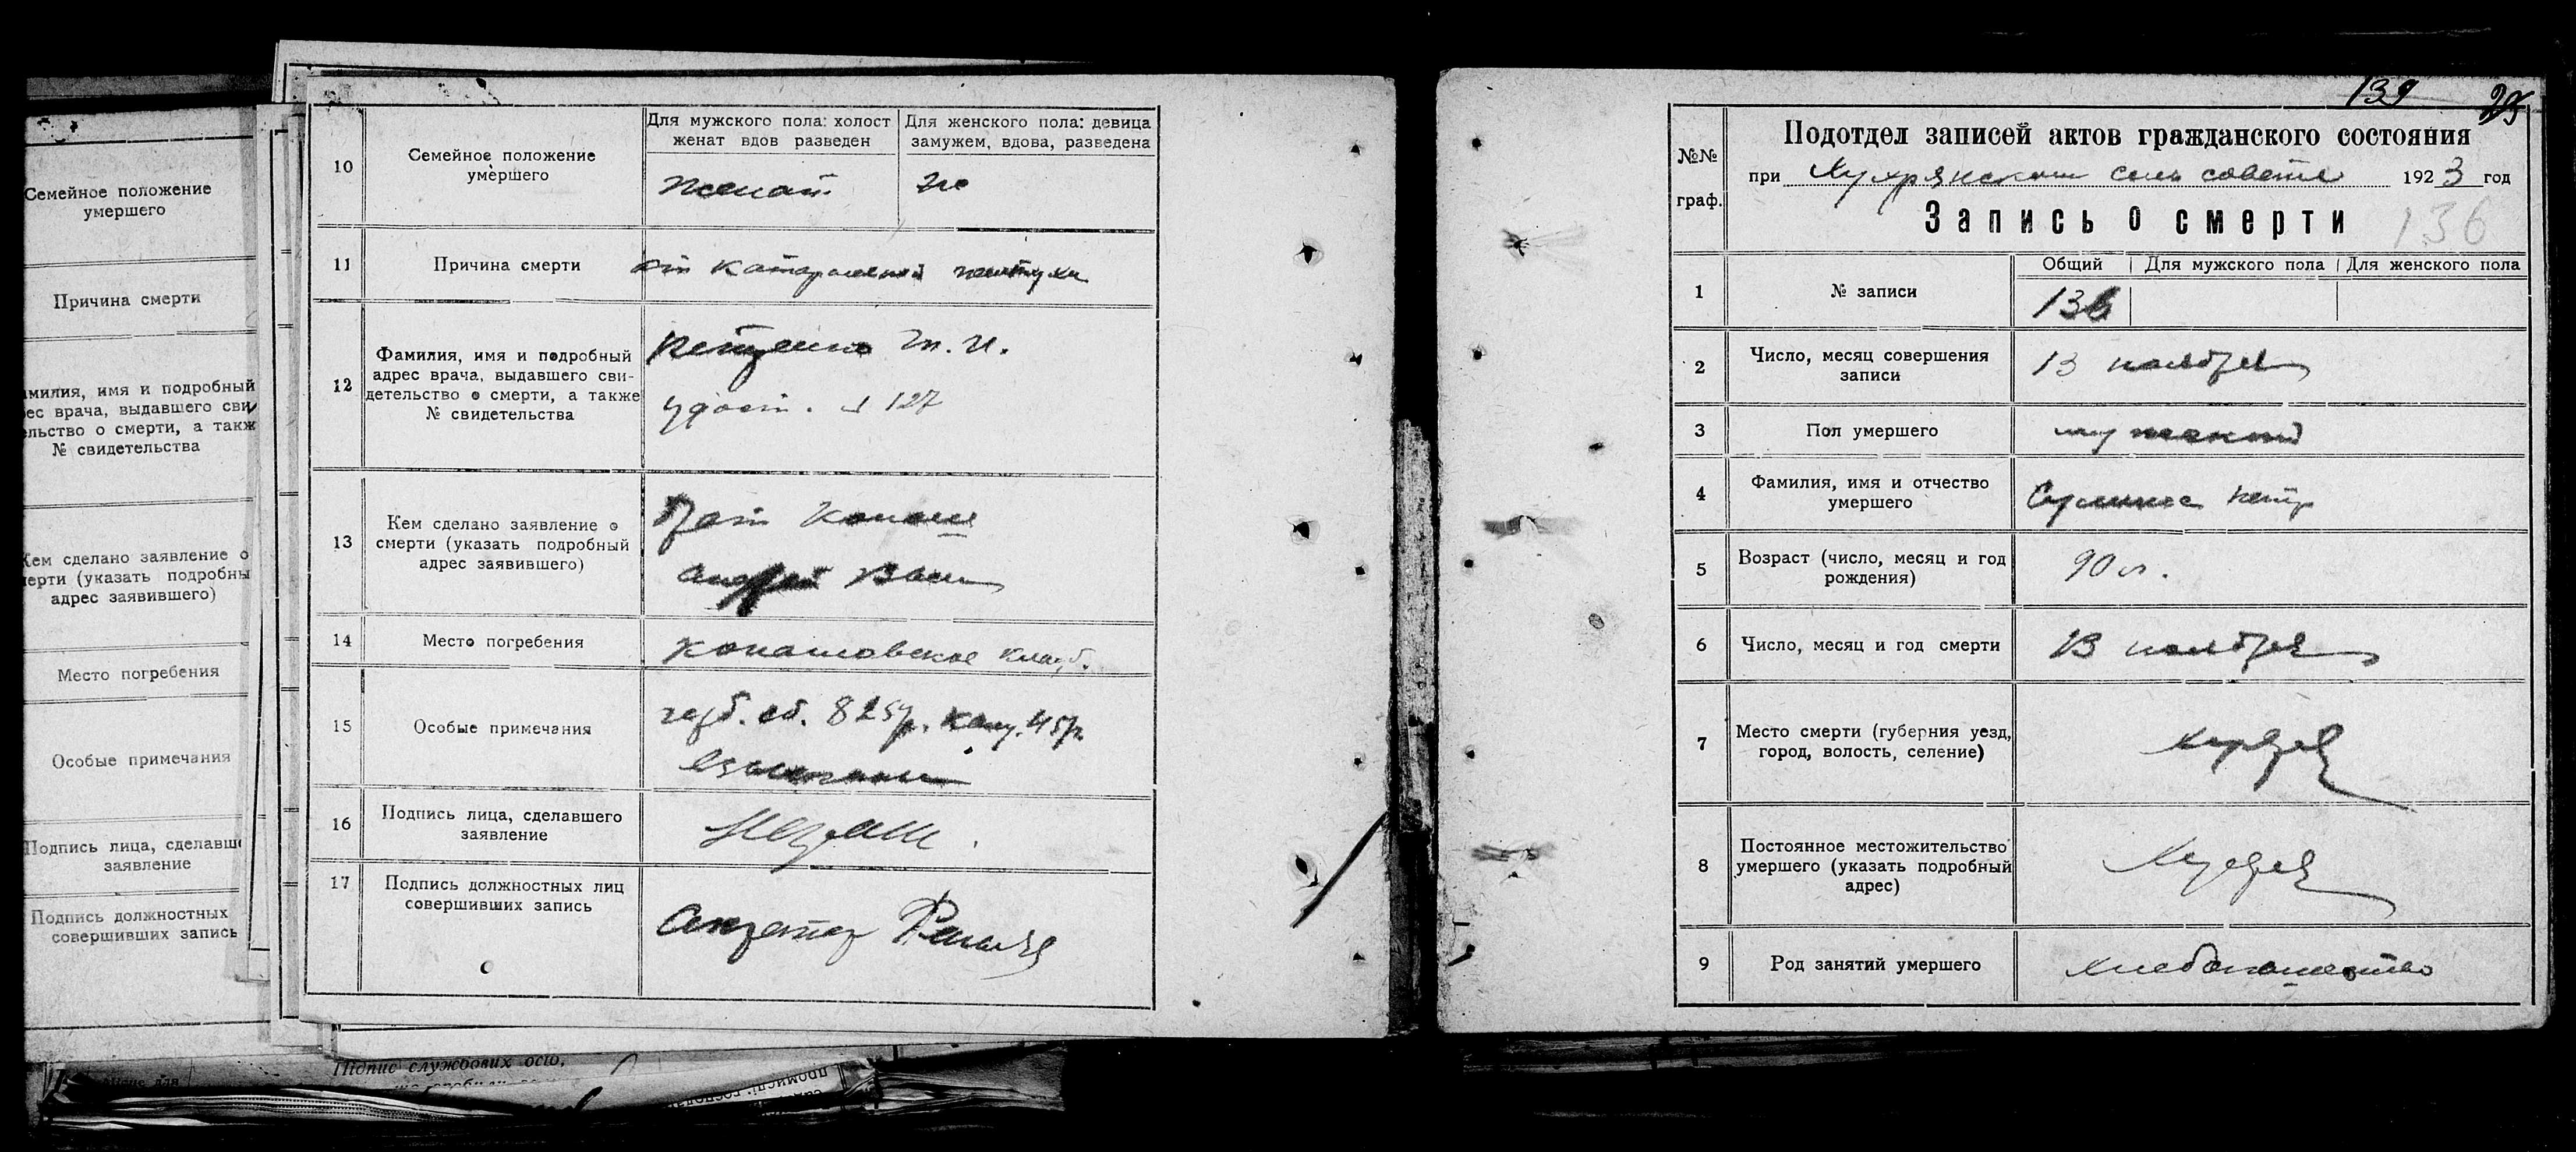 Семейное положение
умершего
Причина смерти
амилия, имя и подробный
ес врача, выдавшего сви
ельство о смерти, а такж
№ свидетельства
Кем сделано заявление о
мерти (указать подробны
адрес заявившего)
Место погребения
Особые примечания
Подпись лица, сделавш
заявление
Подпись должностных
совершивших запись
Підпис службових осіб,
10
Семейное положение
умершего
Для мужского пола: холост
женат вдов разведен
Для женского пола: девица
замужем, вдова, разведена
женат
11
Причина смерти
от катаральной желтухи
12
Фамилия, имя и подробный
адрес врача, выдавшего сви-
детельство о смерти, а также
№ свидетельства
удост. № 127
13
Кем сделано заявление о
смерти (указать подробный
адрес заявившего)
брат Конаш
Андрей Вас
14
Место погребения
Конашовское кладб.
15
Особые примечания
герб. сб. 825р. канц. 45р
взысканы
16
Подпись лица, сделавшего
заявление
17
Подпись должностных лиц
совершивших запись
Секретарь
139
№№
граф.
Подотдел записей актов гражданского состояния
при сель совете 1923 год
Запись о смерти
136
1
№ записи
Общий
Для мужского пола
Для женского пола
136
2
Число, месяц совершения
записи
13 ноября
3
Пол умершего
мужской
4
Фамилия, имя и отчество
умершего
Петр
5
Возраст (число, месяц и год
рождения)
90 л.
6
Число, месяц и год смерти
13 ноября
7
Место смерти (губерния уезд,
город, волость, селение)
8
Постоянное местожительство
умершего (указать подробный
адрес)
9
Род занятий умершего
хлебопашество